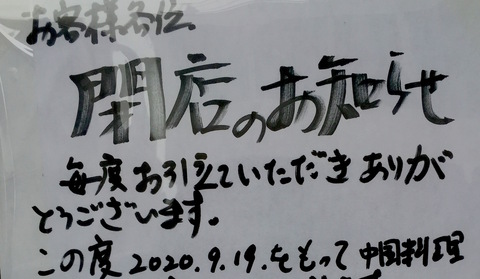 お客様各位
閉店のお知らせ
毎度お引立ていただきありが
とうございます。
この度2020.9.19.をもって中国料理